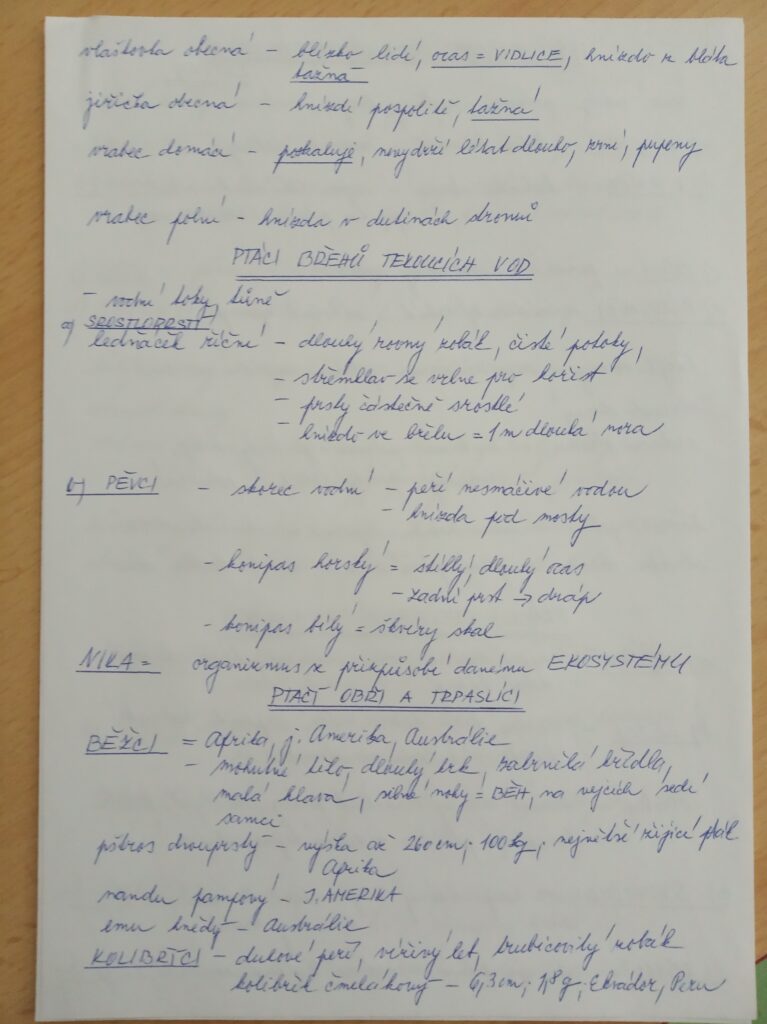 vlaštovka obecná – blízko lidí, ocas = VIDLICE, hnízdo z bláta
tažná
jiřička obecná – hnízdí pospolitě, tažná
vrabec domácí – poskakuje, nevydrží létat dlouho, zrní, pupeny
vrabec polní – hnízda v dutinách stromů
PTÁCI BŘEHŮ TEKOUCÍCH VOD
– vodní toky, tůně
a) SROSTLOPRSTÍ
ledňáček říční – dlouhý rovný zobák, čisté potoky,
– střemhlav se vrhne pro kořist
– prsty částečně srostlé
– hnízdo ve břehu = 1 m dlouhá nora
b) PĚVCI – skorec vodní – peří nesmáčivé vodou
– hnízda pod mosty
– konipas horský = štíhlý, dlouhý ocas
– zadní prst → dráp
– konipas bílý = škvíry skal
NIKA = organizmus se přizpůsobí danému EKOSYSTÉMU
PTAČÍ OBŘI A TRPASLÍCI
BĚŽCI = Afrika, j. Amerika, Austrálie
– mohutné tělo, dlouhý krk, zakrnělá křídla,
malá hlava, silné nohy = BĚH, na vejcích sedí
samci
pštros dvouprstý – výška až 260 cm; 100 kg; největší žijící pták
Afrika
nandu pampový – J. AMERIKA
emu hnědý – Austrálie
KOLIBŘÍCI – duhové peří, vířivý let, trubicovitý zobák
kolibřík čmelákový – 6,3 cm; 1,8 g; Ekvádor, Peru